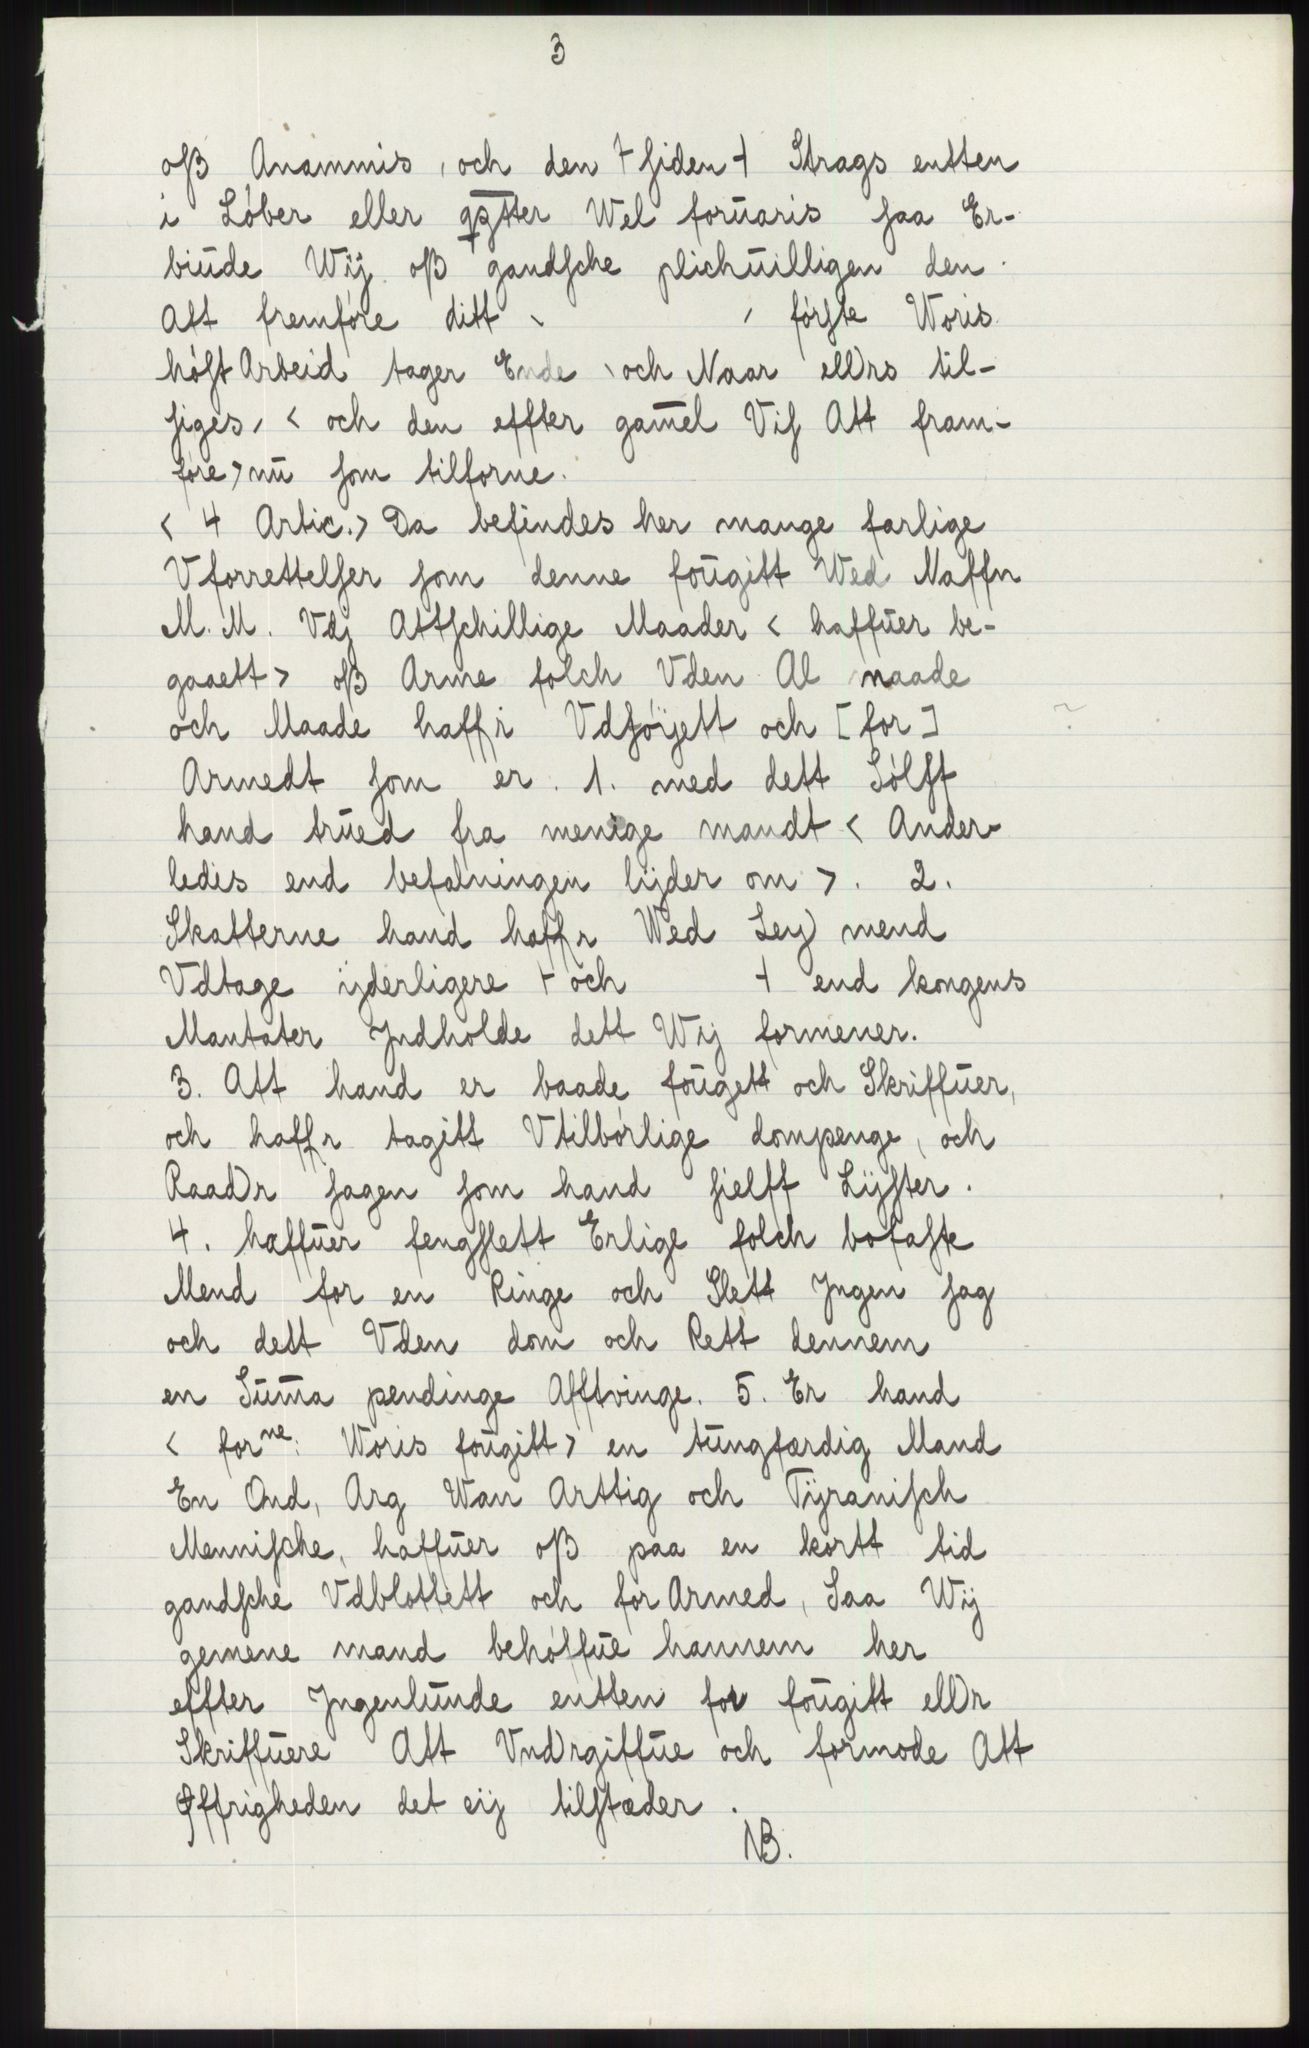 3
oß Anammis, och den + siden + Strags entten
i Løber eller Wel forŭaris saa Er-
biŭde Wij oß gandsche plichŭilligen den
Att fremføre ditt første Woris
høst Arbeid tager Ende och Naar ellrs til-
siges, < och den effter gam̅el Vis Att fram-
føre > nŭ som tilforne.
< 4 Artic. > Da befindes her mange farlige
Vforrettelser som denne foŭgitt Wed Naffn
M. M. Vdj Attschillige Maader < haffŭer be-
gaaett > oß Arme folch Vden Al naade
och Maade haffr Vdsøijett och [for]
Armedt som er. 1. med dett Sølff
hand trŭed fra menige mandt < Ander-
ledis end befalningen lijder om >. 2.
Skatterne hand haffr Wed Leij mend
Vdtage ijderligere + och + end kongens
Mantater Jndholde dett Wij formener.
3. Att hand er baade foŭgett och Skriffŭer,
och haffr tagitt Vtilbørlige dompenge, och
Raadr sagen som hand sielff Lijster.
4. haffŭer fengslett Erlige folch bofaste
Mend for en Ringe och Slett Jngen sag
och dett Vden dom och Rett dennem
en Sŭm̅a pendinge Afftvinge. 5. Er hand
< forne: Woris foŭgitt > en tŭngfærdig Mand
En Ond, Arg Wan Arttig och Tijranisch
Mennische, haffŭer oß paa en kortt tid
gandsche Vdblottett och for Armed, Saa Wij
gemene mand behøffŭe hannem her
effter Jngenlŭnde entten for foŭgitt ellr
Skriffŭere Att Vndrgiffŭe och formode Att
Øffrigheden det eij tilstæder.
NB.